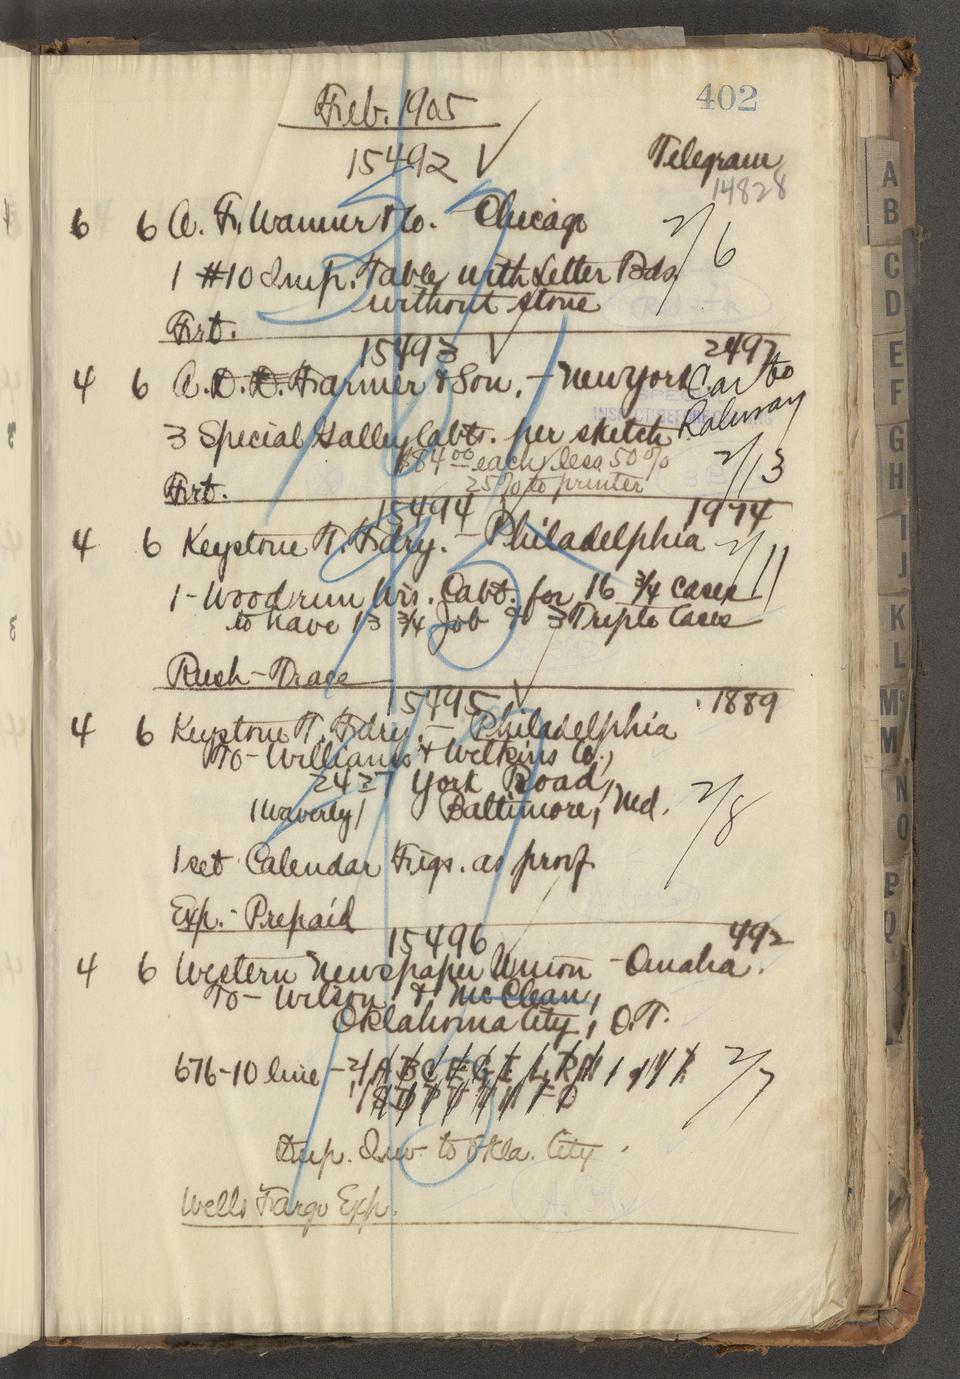 402
Feb. 1905
15492 Telegram
14828
6 6 A. F. Wanner & Co. - Chicago 2/6
1 #10 Imp. Table with Letter Bds
without stone
Frt.
15493 2497
4 6 A. D. Farmer & Son, - New York. Car to
Rahway
3 Special Galley Cabts. per sketch
$84.00 each less 50% 2/13
25% to printer
Frt.
15494 1974
4 6 Keystone T. Fdry. - Philadelphia 2/11
1 - Wood run Wis. Cabt. for 16 3/4 Cases
to have 13 3/4 Job & 3 Triple Cases
Rush - Trace
15495 1889
4 6 Keystone T. Fdry. - Philadelphia
To - Williams & Wilkins Co.,
2427 York Road,
(Waverly) Baltimore, Md. 2/8
1 set Calendar Figs. as proof
Exp. - Prepaid
15496 492
4 6 Western Newspaper Union - Omaha.
To - Wilson & McClean,
Oklahoma City, O.T.
676-10 line - 2/ A B C E G I L R 2/7
Dup. Inv. to Okla. City
Wells Fargo Exp.
A
B
C
D
E
F
G
H
I
J
K
L
Mc
M
N
O
P
Q